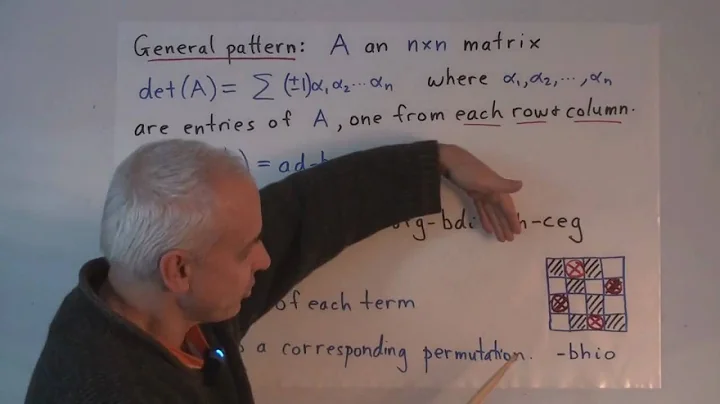 General pattern: A an n×n matrix
det(A) = ∑ (±1)α₁α₂⋯αₙ where α₁,α₂,⋯,αₙ
are entries of A, one from each row & column.
) = ad-b
fg-bdi h-ceg
of each term
a corresponding permutation. -bhio